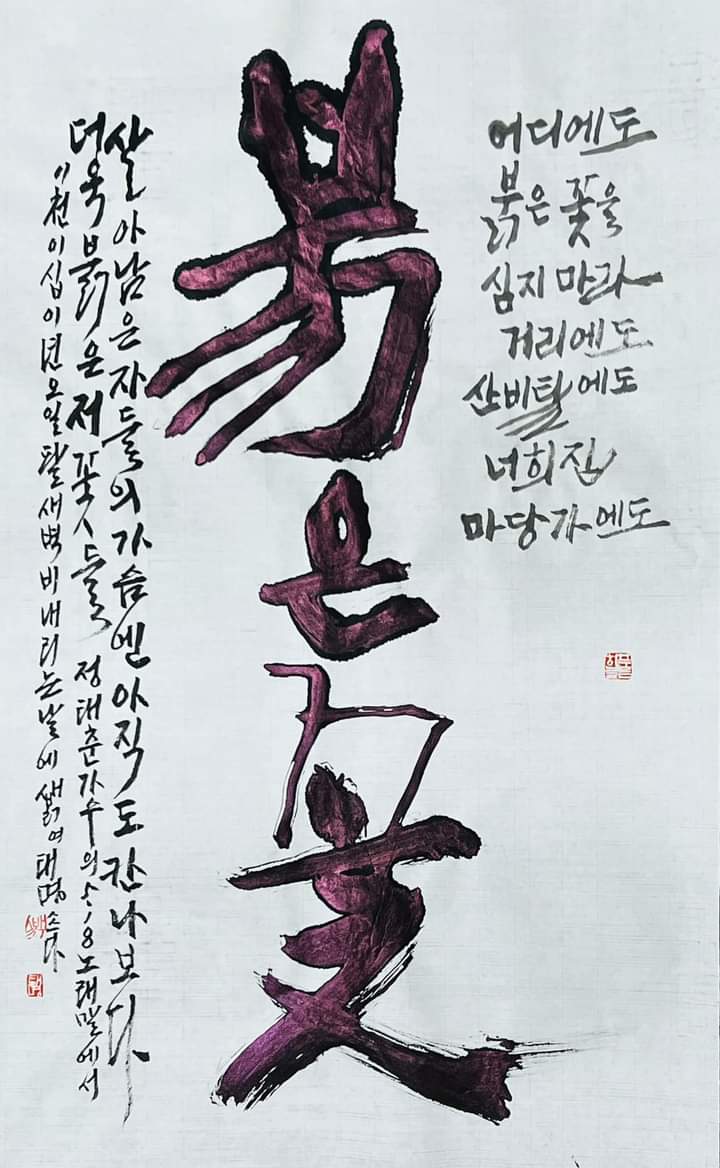 붉은 꽃
어디에도
붉은 꽃을
심지 마라
거리에도
산비탈에도
너희 집
마당가에도
살아남은 자들의 가슴엔 아직도 칸나보다
더욱 붉은 저 꽃들 정태춘가수의 5,18 노래말에서
이천이십이년 오월달 새벽 비내리는날에 여태명 쓰다